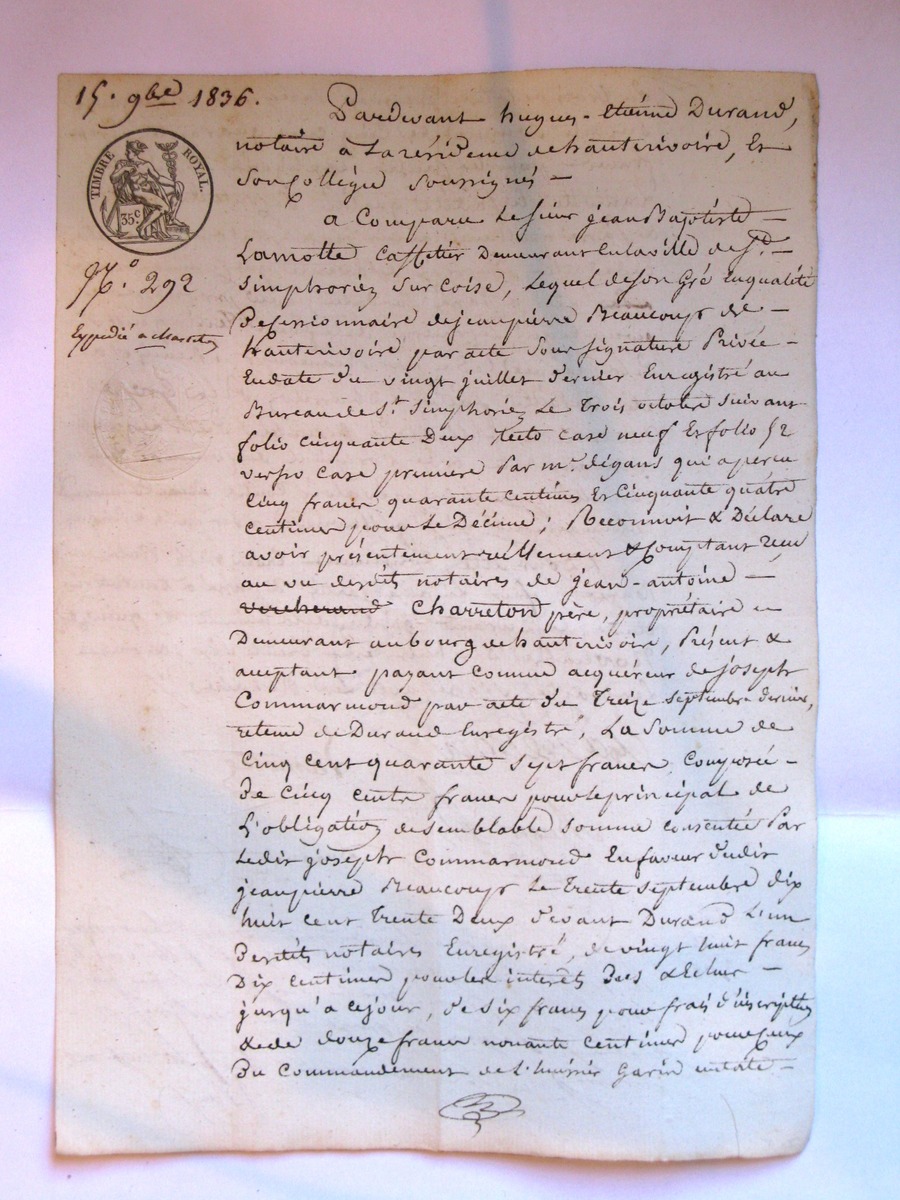 15. 9bre 1836.
TIMBRE ROYAL.
35 c.
N.o 292
Expédié a charret
Pardevant hugues-etiénne Durand,
notaire à La résidence de hauterivoire, Et
Son Collégue Soussignés —
a Comparu Le Sieur jean Baptiste —
Lamotte Caffetier Demeurant En la ville de St. —
Simphorien Sur Coise, Lequel de Son Gré En qualité
De Cessionnaire de jean pierre Beaucoup de —
hauterivoire par acte Sous Signature Privée —
En date du vingt juillet dernier Enregistré au
Bureau de St. Simphorien Le Trois octobre Suivant
folio cinquante Deux Recto case neuf Et folio 52
verso case premiere Par mr. dégans qui a perçu
Cinq francs quarante centimes Et Cinquante quatre
Centimes pour Le Décime; Reconnoit & Déclare
avoir présentement réellement & Comptant reçu
au vu desdits notaires de jean-antoine —
Charreton père, propriétaire
Demeurant au bourg de hauterivoire, Présent &
acceptant payant Comme acquéreur de joseph
Commarmond par acte du Treize Septembre dernier,
retenu de Durand Enregistré, La Somme de
Cinq cent quarante Sept francs, Composée —
De Cinq cents francs pour Le principal de
L'obligation de Semblable Somme consentie Par
Ledit joseph Commarmond En faveur dudit
jean pierre Beaucoup Le Trente Septembre dix
huit cent Trente Deux devant Durand L'un
Desdits notaires Enregistré, de vingt huit francs
Dix Centimes pour les interêts Dus & Echus —
jusqu'à ce jour, de Six francs pour frais d'inscription
& de douze francs nonante Centimes pour Ceux
Du Commandement de L'huissier Garin en date —